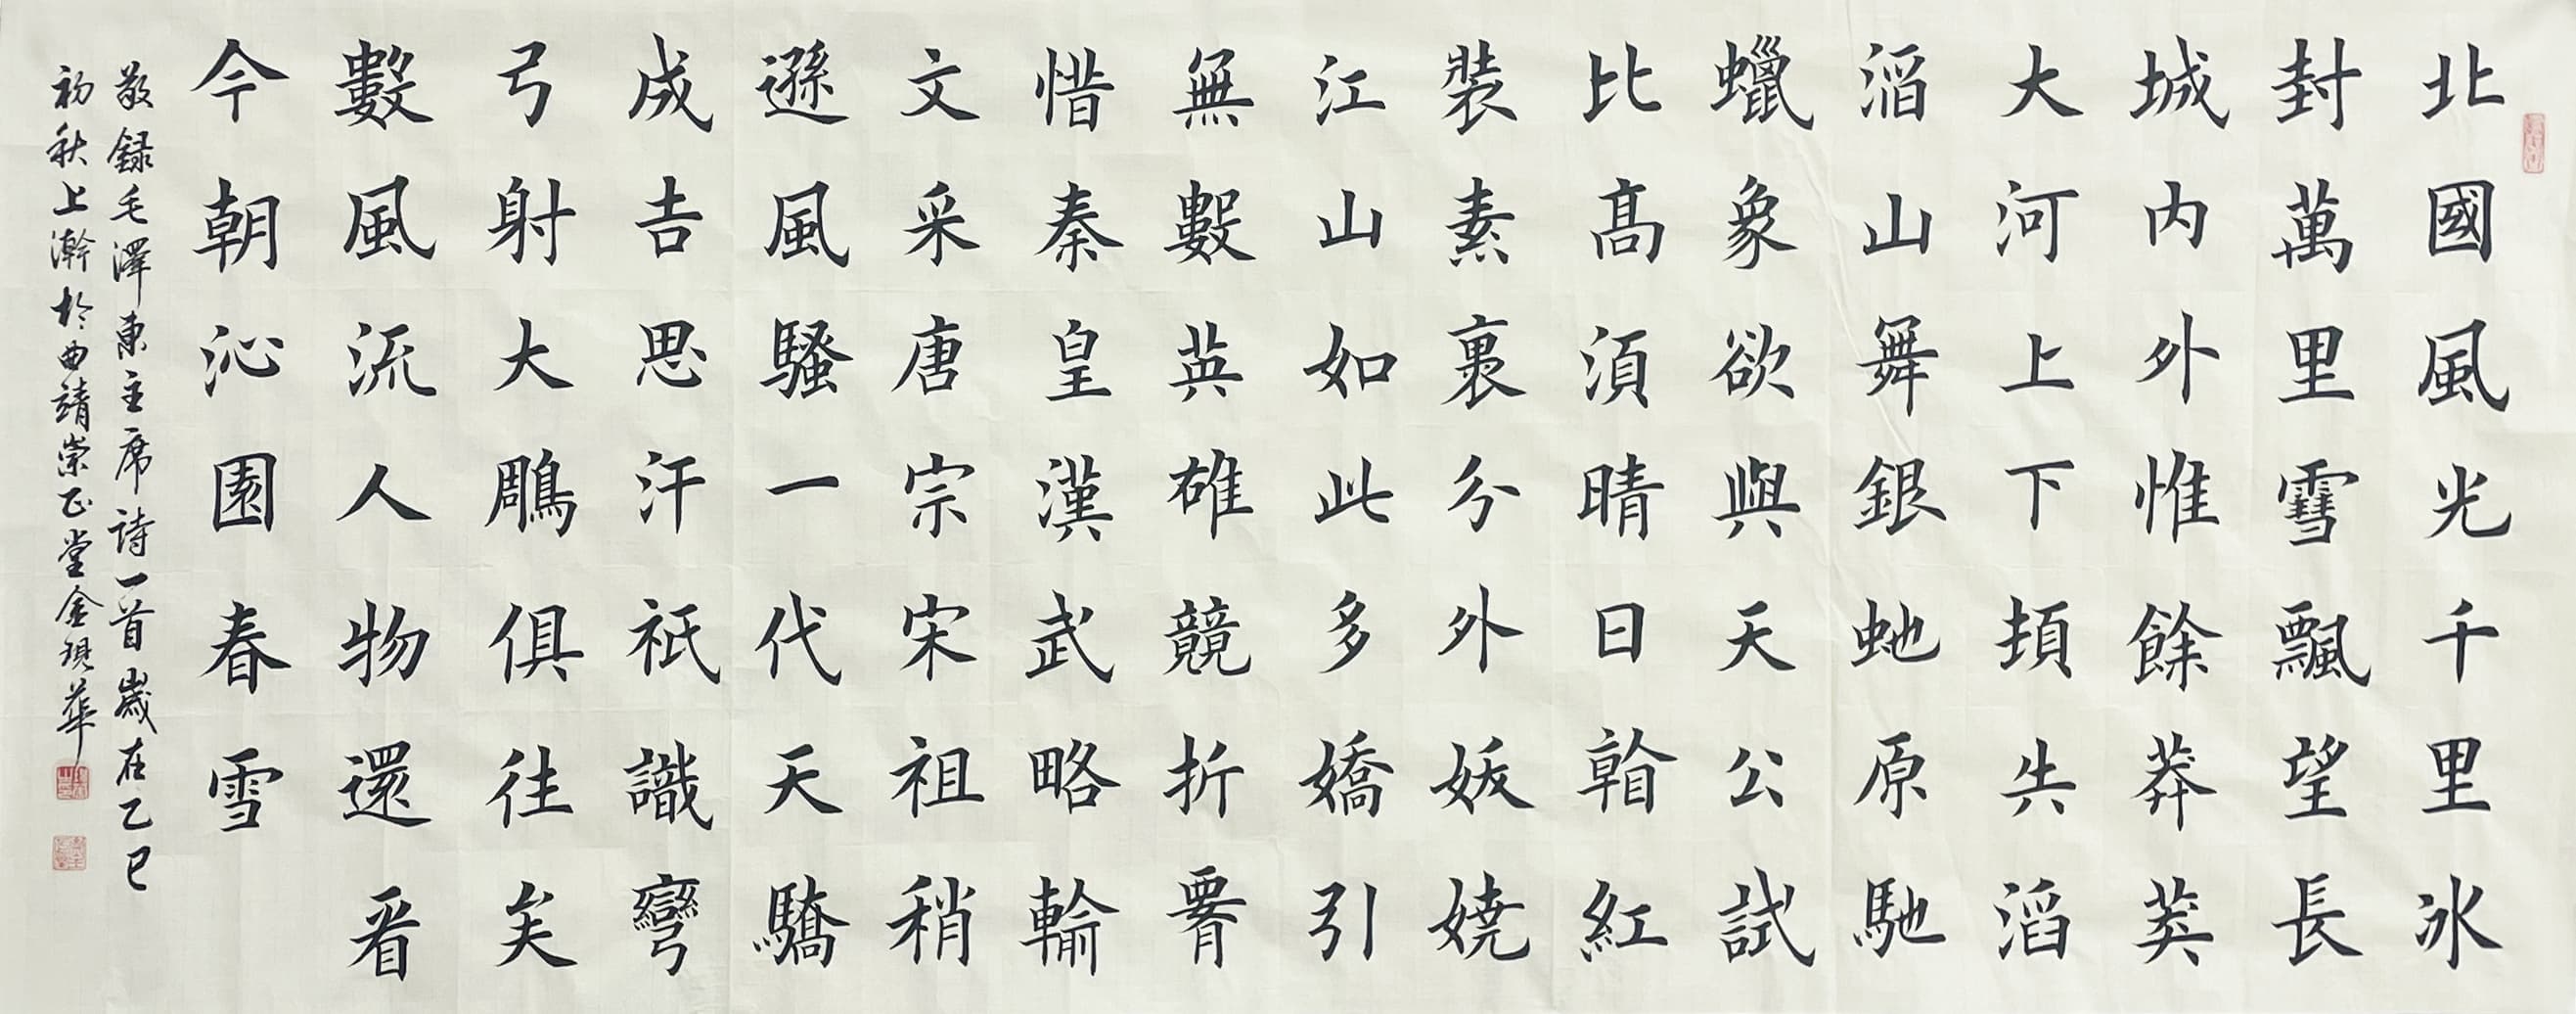 北國風光千里冰
封萬里雪飄望長
城内外惟餘莽莽
大河上下頓失滔
滔山舞銀蛇原馳
蠟象欲與天公試
比高須晴日看紅
裝素裹分外妖嬈
江山如此多嬌引
無數英雄競折腰
惜秦皇漢武略輸
文采唐宗宋祖稍
遜風騷一代天驕
成吉思汗祇識彎
弓射大鵰俱往矣
數風流人物還看
今朝沁園春雪
敬録毛澤東主席詩一首歲在乙巳
初秋上澣於曲靖崇正堂金琪華